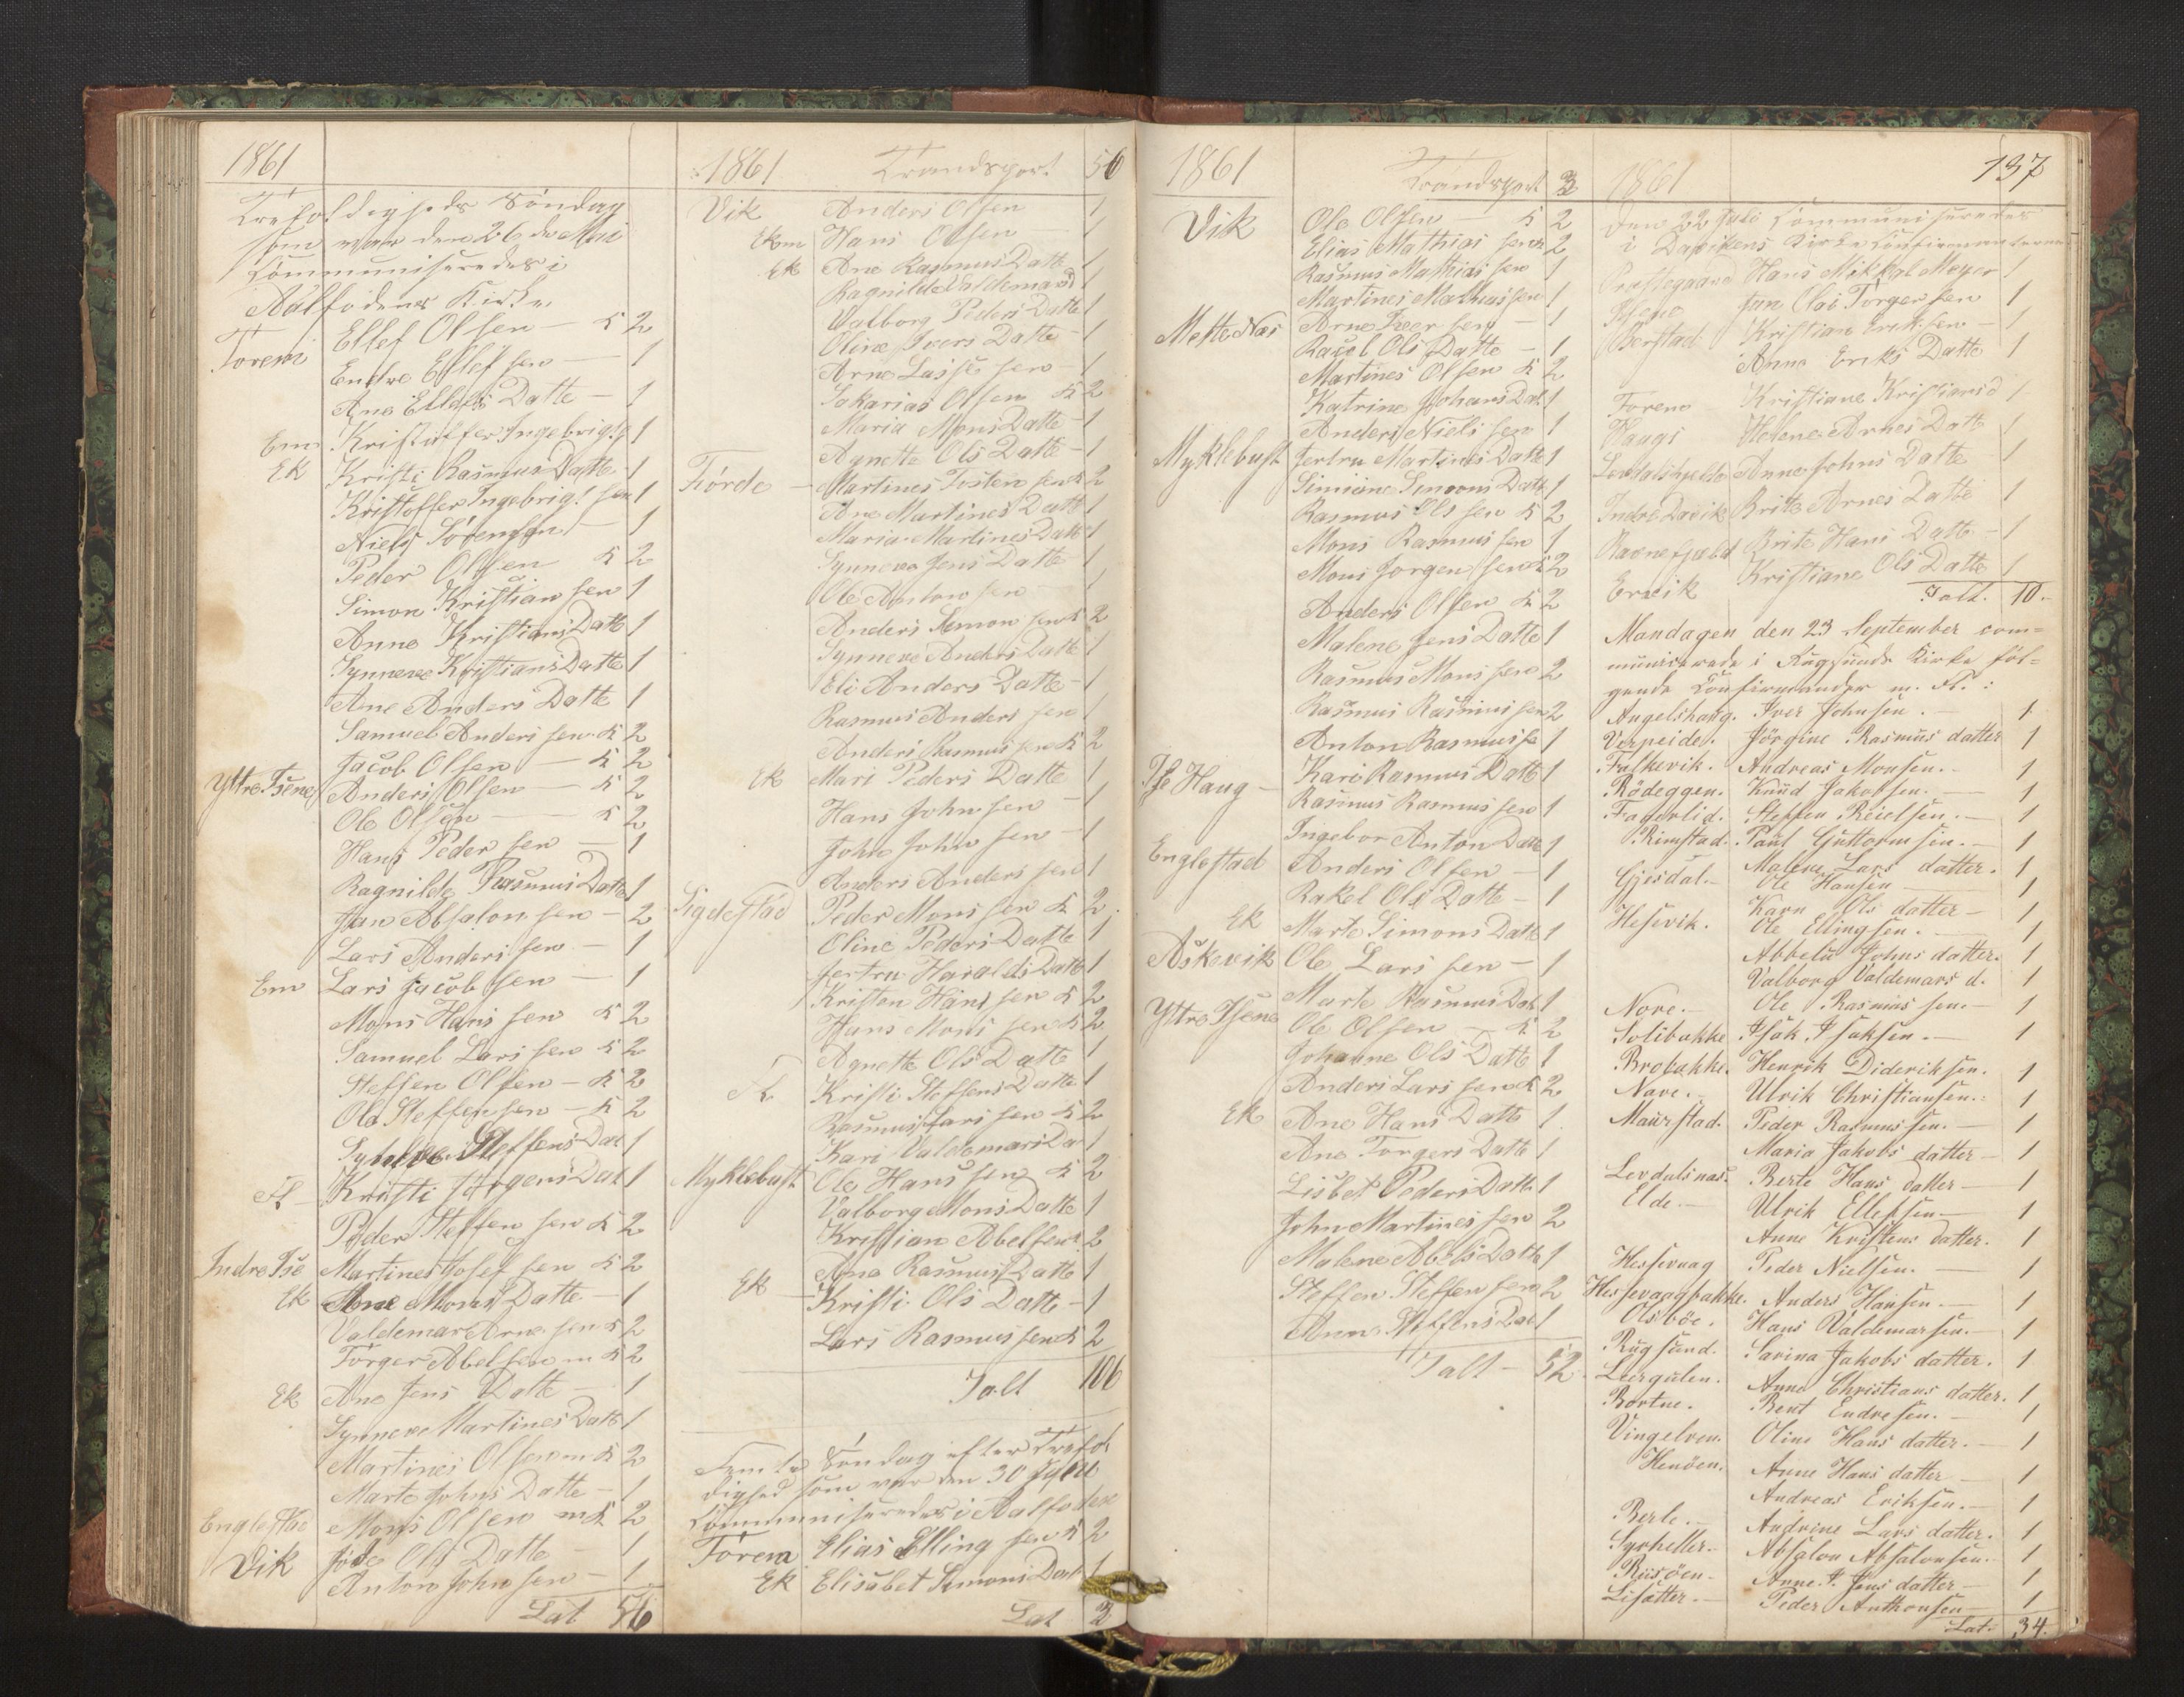 1861
Trefoldigheds Söndag
som var den 26 de Mai
Communiseredes i
Aalfodens Kirke
Torem Ellef Olsen — K 2
Endre Ellef sen — 1
Ane Ellefs Datte — 1
Em Kristoffer Ingebrigts 1
Ek Kristi Rasmus Datte 1
Kristoffer Ingebrigt sen 1
Niels Sörensen — 1
Peder Olsen K 2
Simon Kristian sen 1
Anne Kristians Datte 1
Synneve Kristians Datte 1
Ane Anders Datte 1
Samuel Anders sen K 2
Jacob Olsen — K 2
Yttre Isene Anders Olsen — K 2
Ole Olsen — K 2
Hans Peder sen — 1
Ragnilde Rasmus Datte 1
Jan Absalon sen — 2
Lars Anders sen — 1
Em Lars Jacob sen — 1
Mons Hans sen K 2
Samuel Lars sen K 2
Steffen Olsen — K 2
Ole Steffensen — K 2
Synneve Steffens Dat 1
Fl Kristi Torgers Dat 1
Peder Steffen sen K 2
Indre Ise Martines Josef sen K 2
Ek Ane Mons Datte — 1
Valdemar Arne sen K 2
Torger Abel sen m K 2
Ek Ane Jens Datte — 1
Synneve Martines Datte 1
Martines Olsen m K 2
Marte Johns Datte — 1
Englestad Mons Olsen m K 2
Vik Ols Datte — 1
Anton John sen — 1
Lat 56
1861 Trandsport 56
Vik Anders Olsen 1
Ekm Hans Olsen 1
Ek Ane Rasmus Datte 1
Ragnilde Valdemars d 1
Valborg Peders Datte 1
Oline Ivers Datte — 1
Arne Lasse sen — 1
Sakarias Olsen K 2
Maria Mons Datte — 1
Agnette Ols Datte — 1
Förde — Martines Tosten sen K 2
Ane Martines Datte 1
Maria Martines Datte 1
Synneve Jens Datte 1
Ole Anton sen 1
Anders Simon sen K 2
Synneve Anders Datte 1
Eli Anders Datte — 1
Rasmus Anders sen 1
Anders Rasmus sen K 2
Ek Mari Peders Datte 1
Hans John sen — 1
John John sen — 1
Anders Anders sen 1
Sigdestad Peder Mons sen K 2
Oline Peders Datte 1
Jertru Haralds Datte 1
Kristen Hans sen K 2
Hans Mons sen K 2
Agnette Ols Datte 1
Fl Kristi Steffens Datte 1
Rasmus Lars sen K 2
Kari Valdemars Da 1
Myklebust Ole Hans sen K 2
Valborg Mons Datte 1
Kristian Abel sen 2
Ana Rasmus Datte 1
Ek Kristi Ols Datte — 1
Lars Rasmus sen K 2
Talt 106
Femte Söndag efter Trefol
dighed som var den 30 Juni
Communiseredes i Aalfoden
Torem Elias Elling sen K 2
Ek Elisabet Simons Dat 1
Lat 3
1861 Trandsport 3
Vik Ole Olsen — K 2
Elias Mathias sen K 2
Rasmus Mathias sen 1
Martines Mathias sen 1
Mette Næs Arne Iver sen — 1
Racel Ols Datte — 1
Martines Olsen K 2
Katrine Johans Dat 1
Anders Niels sen 1
Myklebust Jertru Martines Datte 1
Simiane Simons Datte 1
Rasmus Ols sen K 2
Mons Rasmus sen 1
Mons Jorgen sen K 2
Anders Olsen K 2
Malene Jens Datte 1
Rasmus Mons sen 2
Rasmus Rasmus sen 2
Anton Rasmus se 1
Ise Haug — Kari Rasmus Datte 1
Rasmus Rasmus sen 1
Ingebor Anton Datte 1
Englestad Anders Olsen — 1
Rakel Ols Datte — 1
Ek Marte Simons Datte 1
Askevik Ole Lars sen — 1
Marte Rasmus Dat 1
Yttre Isene Ole Olsen K 2
Johanne Ols Datte 1
Anders Lars sen K 2
Ek Ane Hans Datte 1
Ane Torgers Datte 1
Lisbet Peders Datte 1
John Martines sen 2
Malene Abels Datte 1
Steffen Steffen sen 2
Anne Steffens Dat 1
Talt — 52
1861 137
Den 22 Juli Communiseredes
i Davikens Kirke Confirmanterne
Præstegaard Hans Mikkal Meyer 1
Isene Jan Olai Torger sen 1
Berstad Kristian Erik sen — 1
Anne Eriks Datte 1
Torem Kristiane Kristians d 1
Haugs Helene Arnes Datte 1
Levdalshjelde Anne Johns Datte 1
Indre Davik Brite Arnes Datte 1
Ravnefjæld Brite Hans Datte — 1
Ervik Kristiane Ols Datte 1
Talt. 10.
Mandagen den 23 September com=
municerede i Rugsunds Kirke föl=
gende Confirmander m. Fl. :
Angelshaug. Iver Johnsen. — 1
Verpeide. Jörgine Rasmus datter 1
Falkevik. Andreas Monsen. — 1
Rödeggen. Knud Jakobsen. — 1
Fagerlid. Steffen Reielsen. — 1
Rimstad. Paul Guttormsen. — 1
Malene Lars datter. 1
Gjesdal. — Ole Hansen — 1
Karn Ols datter — 1
Hesevik. Ole Ellingsen. — 1
Abbelu Johns datter. 1
Valborg Valdemars d. 1
Nore. — Ole Rasmus sen. — 1
Solibakke Isak Isaksen. — 1
Brobakke. Henrik Dideriksen. 1
Nave. — Ulrik Christiansen. 1
Maurstad. Peder Rasmussen. — 1
Maria Jakobs datter — 1
Levdalsnæs. Berte Hans datter — 1
Elde. — Ulrik Ellefsen — 1
Anne Kristens datter. 1
Hessevaag Peder Nielsen. — 1
Hessevaagbakke. Anders Hansen — 1
Olsböe. Hans Valdemarsen. — 1
Rugsund. Sarina Jakobs datter. 1
Leergulen. Anne Christians datter. 1
Bortne. Bent Endresen. — 1
Vingelven. Oline Hans datter. — 1
Henöen. Anne Hans datter — 1
Andreas Eriksen. — 1
Berle. — Andrine Lars datter. 1
Syrheller. — Absalon Absalonsen. 1
Risöen — Anne I. Jens datter — 1
Lisætter. — Peder Anthonsen — 1
Lat. 34.